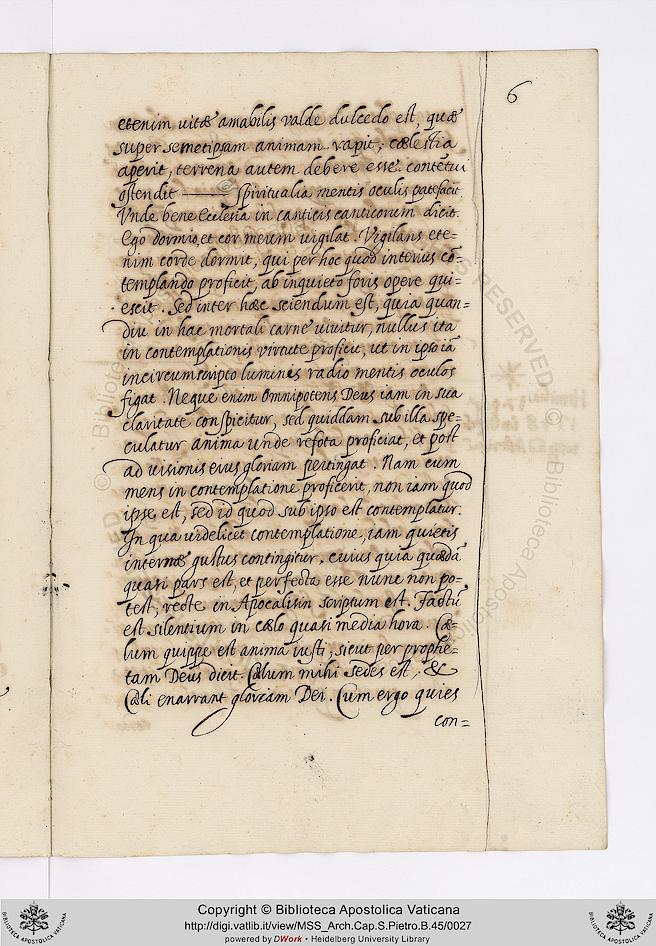 6
etenim uitæ amabilis valde dulcedo est, quæ
super semetipsam animam rapit, cælestia
aperit, terrena autem debere esse contetui
ostendit ——— spiritualia mentis oculis patefacit.
Vnde bene Ecclesia in canticis canticorum dicit.
Ego dormio, et cor meum uigilat. Vigilans ete=
nim corde dormit, qui per hoc quod interius cō=
templando proficit, ab inquieto foris opere qui=
escit. Sed inter hæc sciendum est, quia quan=
diu in hac mortali carne uiuitur, nullus ita
in contemplationis virtute proficit, ut in ipso iā
incircumscripto luminis radio mentis oculos
figat. Neque enim Omnipotens Deus iam in sua
claritate conspicitur, sed quiddam sub illa spe=
culatur anima unde refota proficiat, et post
ad visionis eius gloriam pertingat. Nam cum
mens in contemplatione proficerit, non iam quod
ipse est, sed id quod sub ipso est contemplatur.
In qua uidelicet contemplatione, iam quietis
internæ gustus contingitur, cuius quia quædā
quasi pars est, et perfecta esse nunc non po=
test, recte in Apocalisin scriptum est. Factū
est silentium in cælo quasi media hora. Cæ=
lum quippe est anima iusti, sicut per prophe=
tam Deus dicit. Cælum mihi sedes est, &
Cæli enarrant gloriam Dei. Cum ergo quies
con=
© Biblioteca Apostolica
RESERVED © Biblioteca Apostolica
BIBLIOTECA APOSTOLICA VATICANA
Copyright © Biblioteca Apostolica Vaticana
http://digi.vatlib.it/view/MSS_Arch.Cap.S.Pietro.B.45/0027
powered by DWork • Heidelberg University Library
BIBLIOTECA APOSTOLICA VATICANA